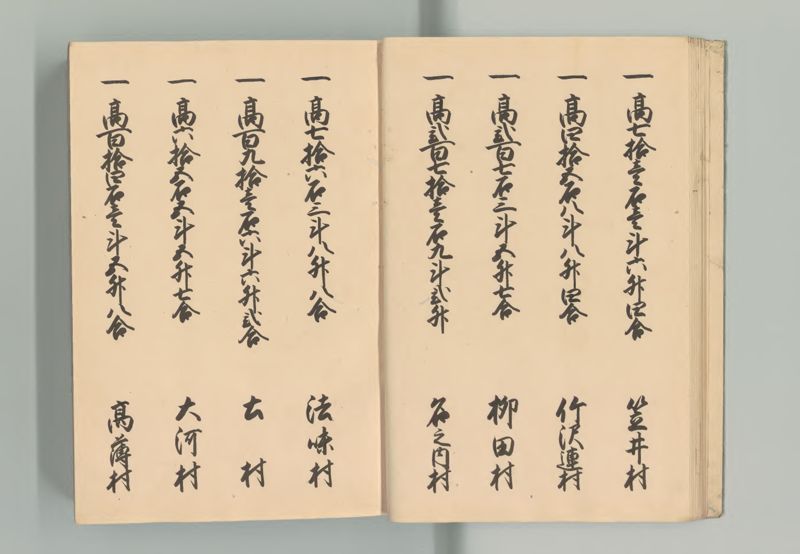 一 高七拾壱石壱斗六升四合 笠井村
一 高四拾五石八斗八升四合 竹沢連村
一 高弐百七石三斗五升七合 柳田村
一 高弐百七拾壱石九斗弐升 谷之内村
一 高七拾六石三斗八升八合 法味村
一 高百九拾壱石六斗六升弐合 古村
一 高六拾五石五斗五升七合 大河村
一 高百拾四石壱斗五升八合 高薄村